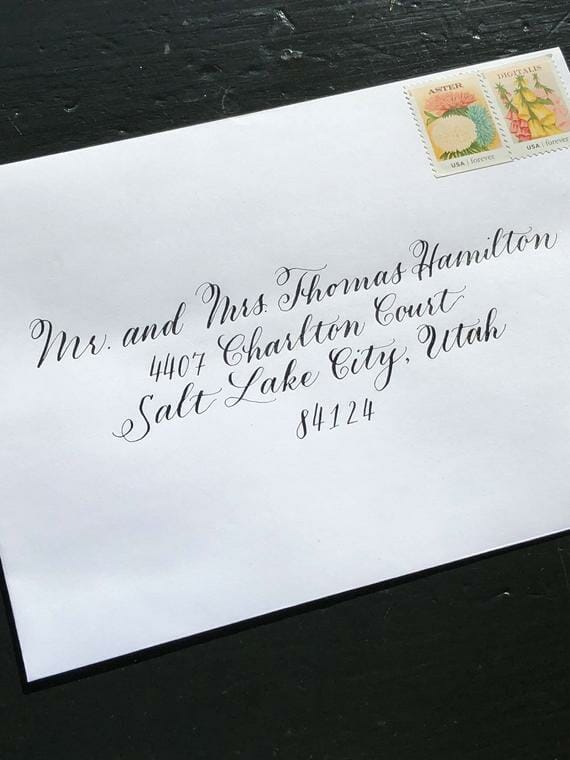 ASTER
USA | forever
DIGITALIS
USA | forever
Mr. and Mrs. Thomas Hamilton
4407 Charlton Court
Salt Lake City, Utah
84124